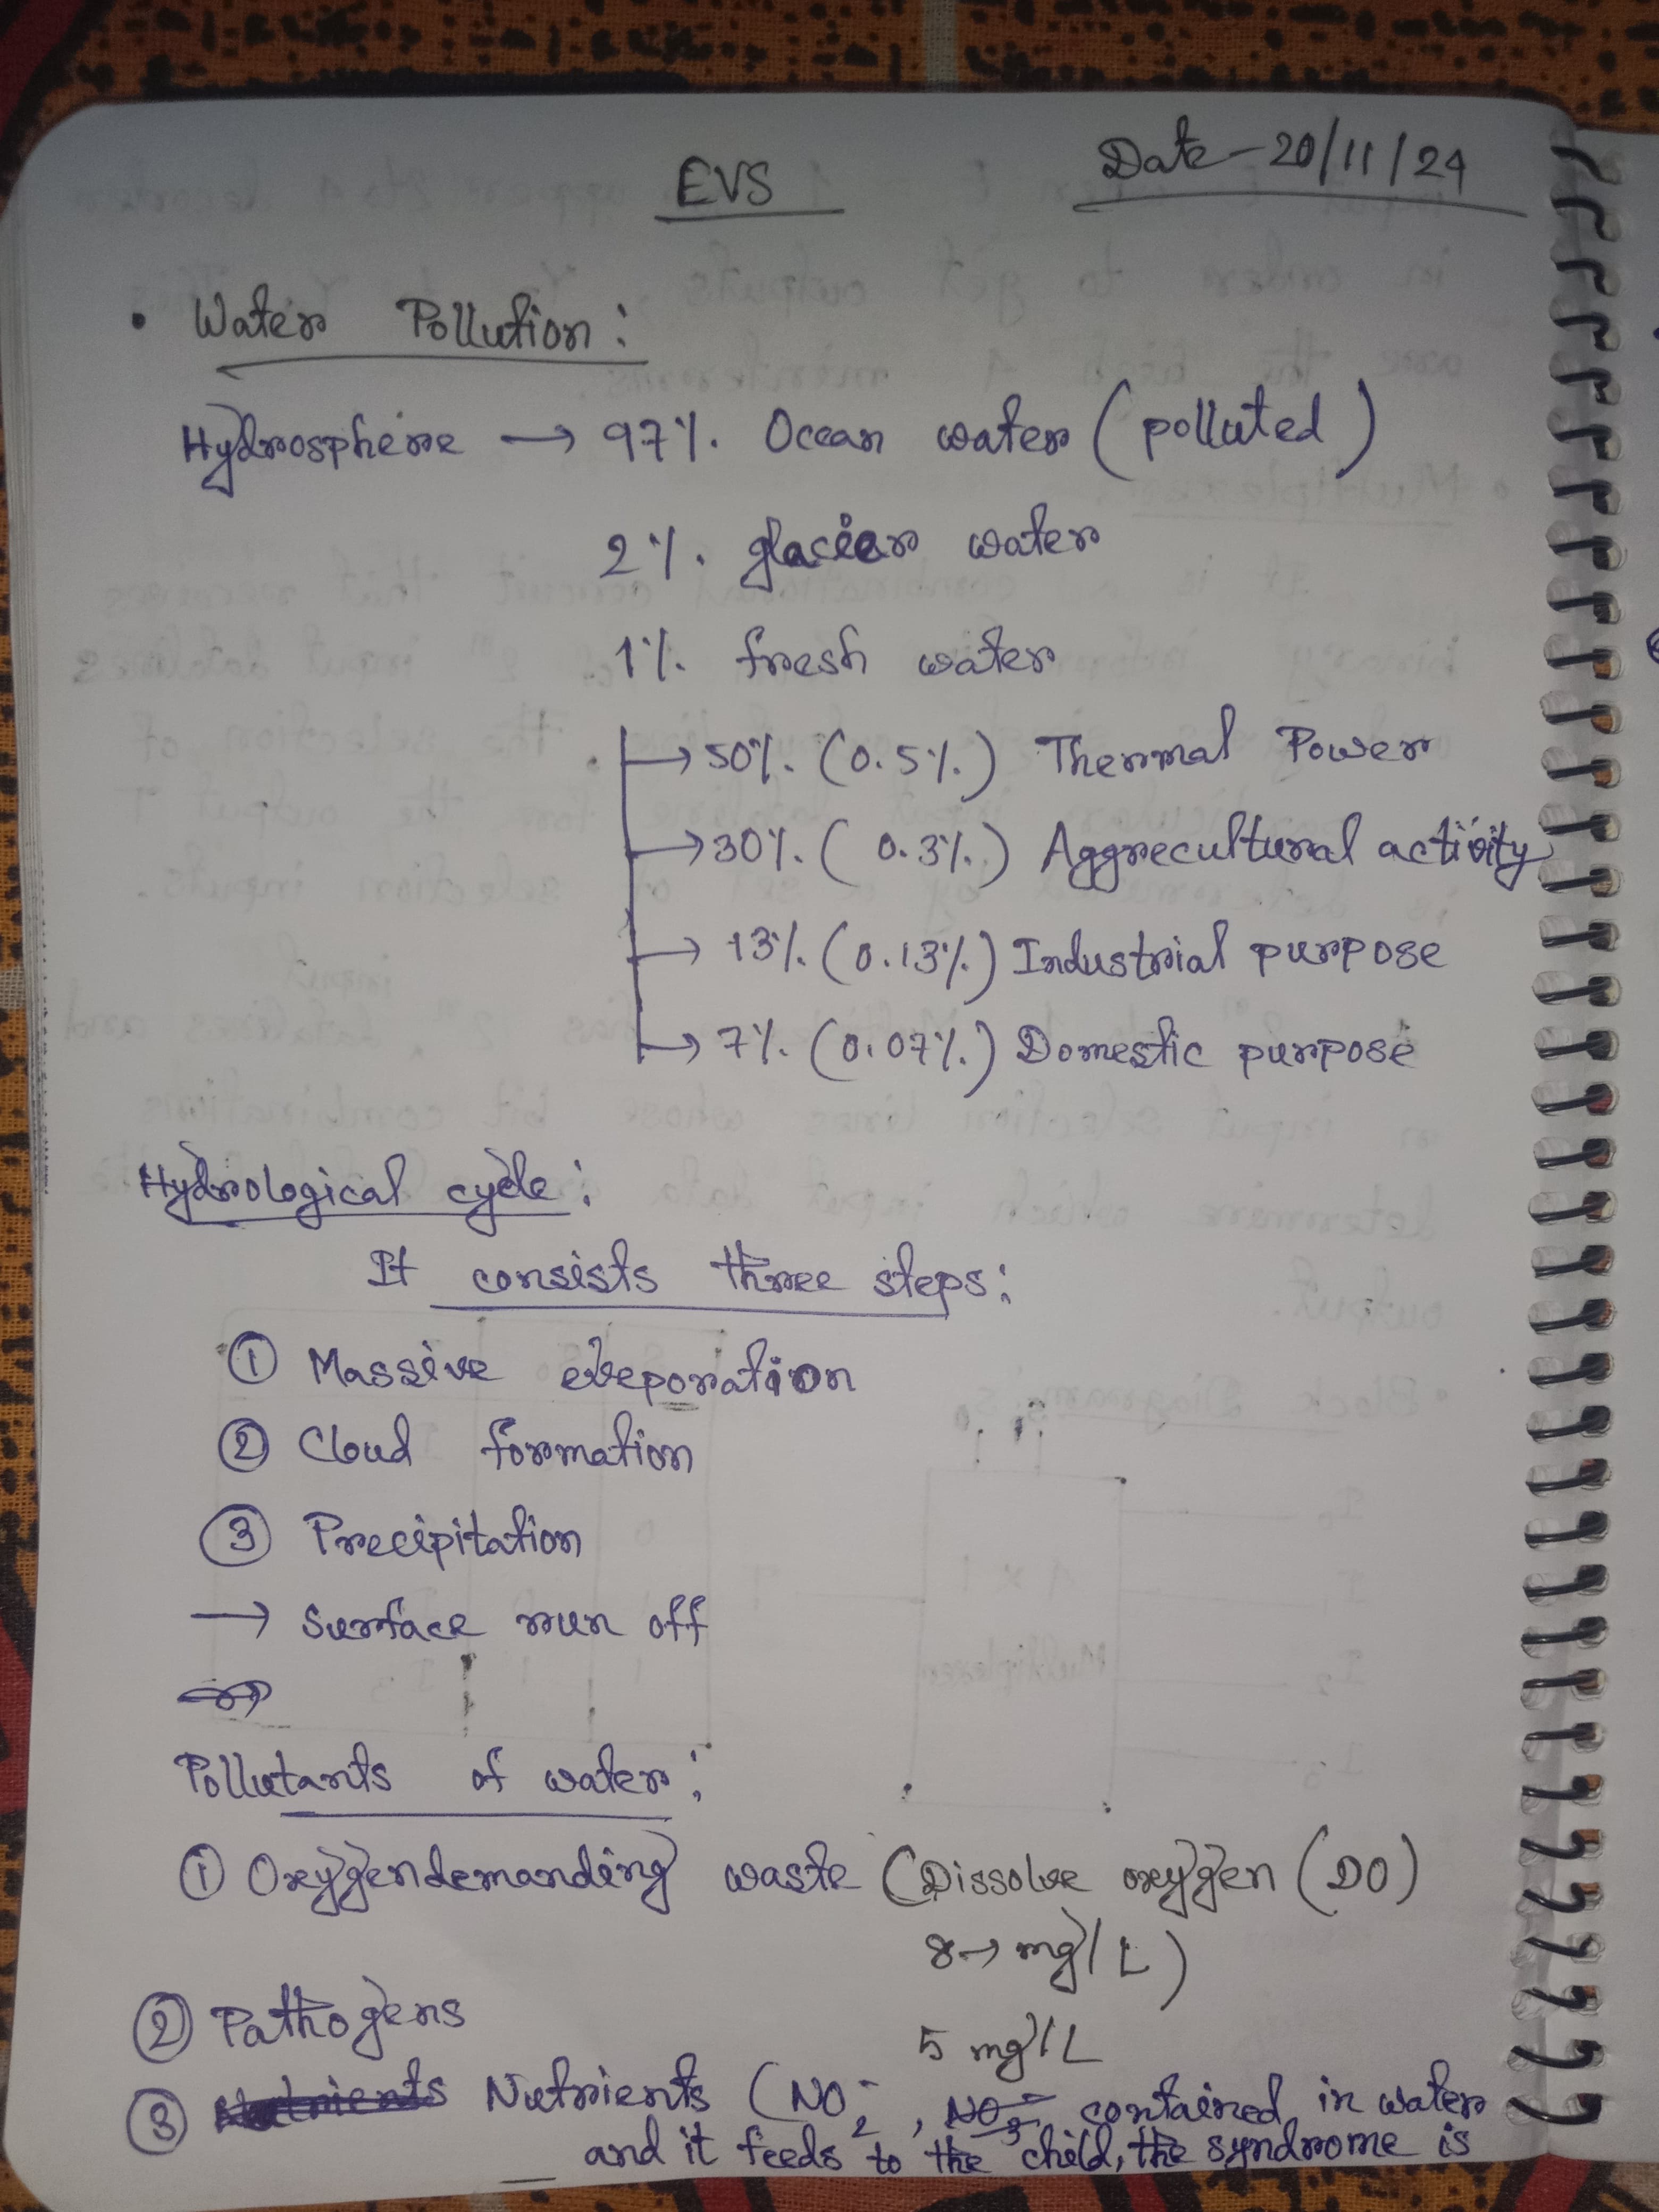 EVS
Date - 20/11/24
• Water Pollution :
Hydrosphere → 97%. Ocean water (polluted)
2%. glacier water
1%. fresh water
→ 50%. (0.5%.) Thermal Power
→ 30%. (0.3%.) Aggrecultural activity
→ 13%. (0.13%.) Industrial purpose
→ 7%. (0.07%.) Domestic purpose
Hydrological cycle :
It consists three steps :
① Massive eveporation
② Cloud formation
③ Precipitation
→ Surface run off
Pollutants of water :
① Oxygendemanding waste (Dissolve oxygen (DO)
8 → mg/L)
② Pathogens
5 mg/L
③ Nutrients Nutrients (NO₂⁻, NO₃⁻ contained in water
and it feeds to the child, the syndrome is